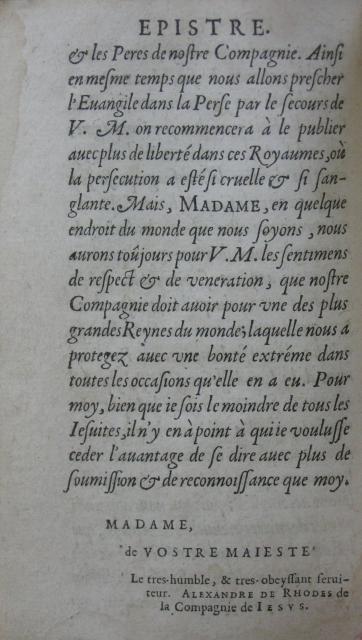 EPISTRE.
& les Peres de nostre Compagnie. Ainsi
en mesme temps que nous allons prescher
l'Euangile dans la Perse par le secours de
V. M. on recommencera à le publier
auec plus de liberté dans ces Royaumes, où
la persecution a esté si cruelle & si san-
glante. Mais, MADAME, en quelque
endroit du monde que nous soyons, nous
aurons toûjours pour V. M. les sentimens
de respect & de veneration, que nostre
Compagnie doit auoir pour vne des plus
grandes Reynes du monde; laquelle nous a
protegez auec vne bonté extréme dans
toutes les occasions qu'elle en a eu. Pour
moy, bien que ie sois le moindre de tous les
Iesuites, il n'y en à point à qui ie voulusse
ceder l'auantage de se dire auec plus de
soumission & de reconnoissance que moy.
MADAME,
de VOSTRE MAIESTE'
Le tres-humble, & tres-obeyssant serui-
teur. ALEXANDRE DE RHODES de
la Compagnie de IESVS.